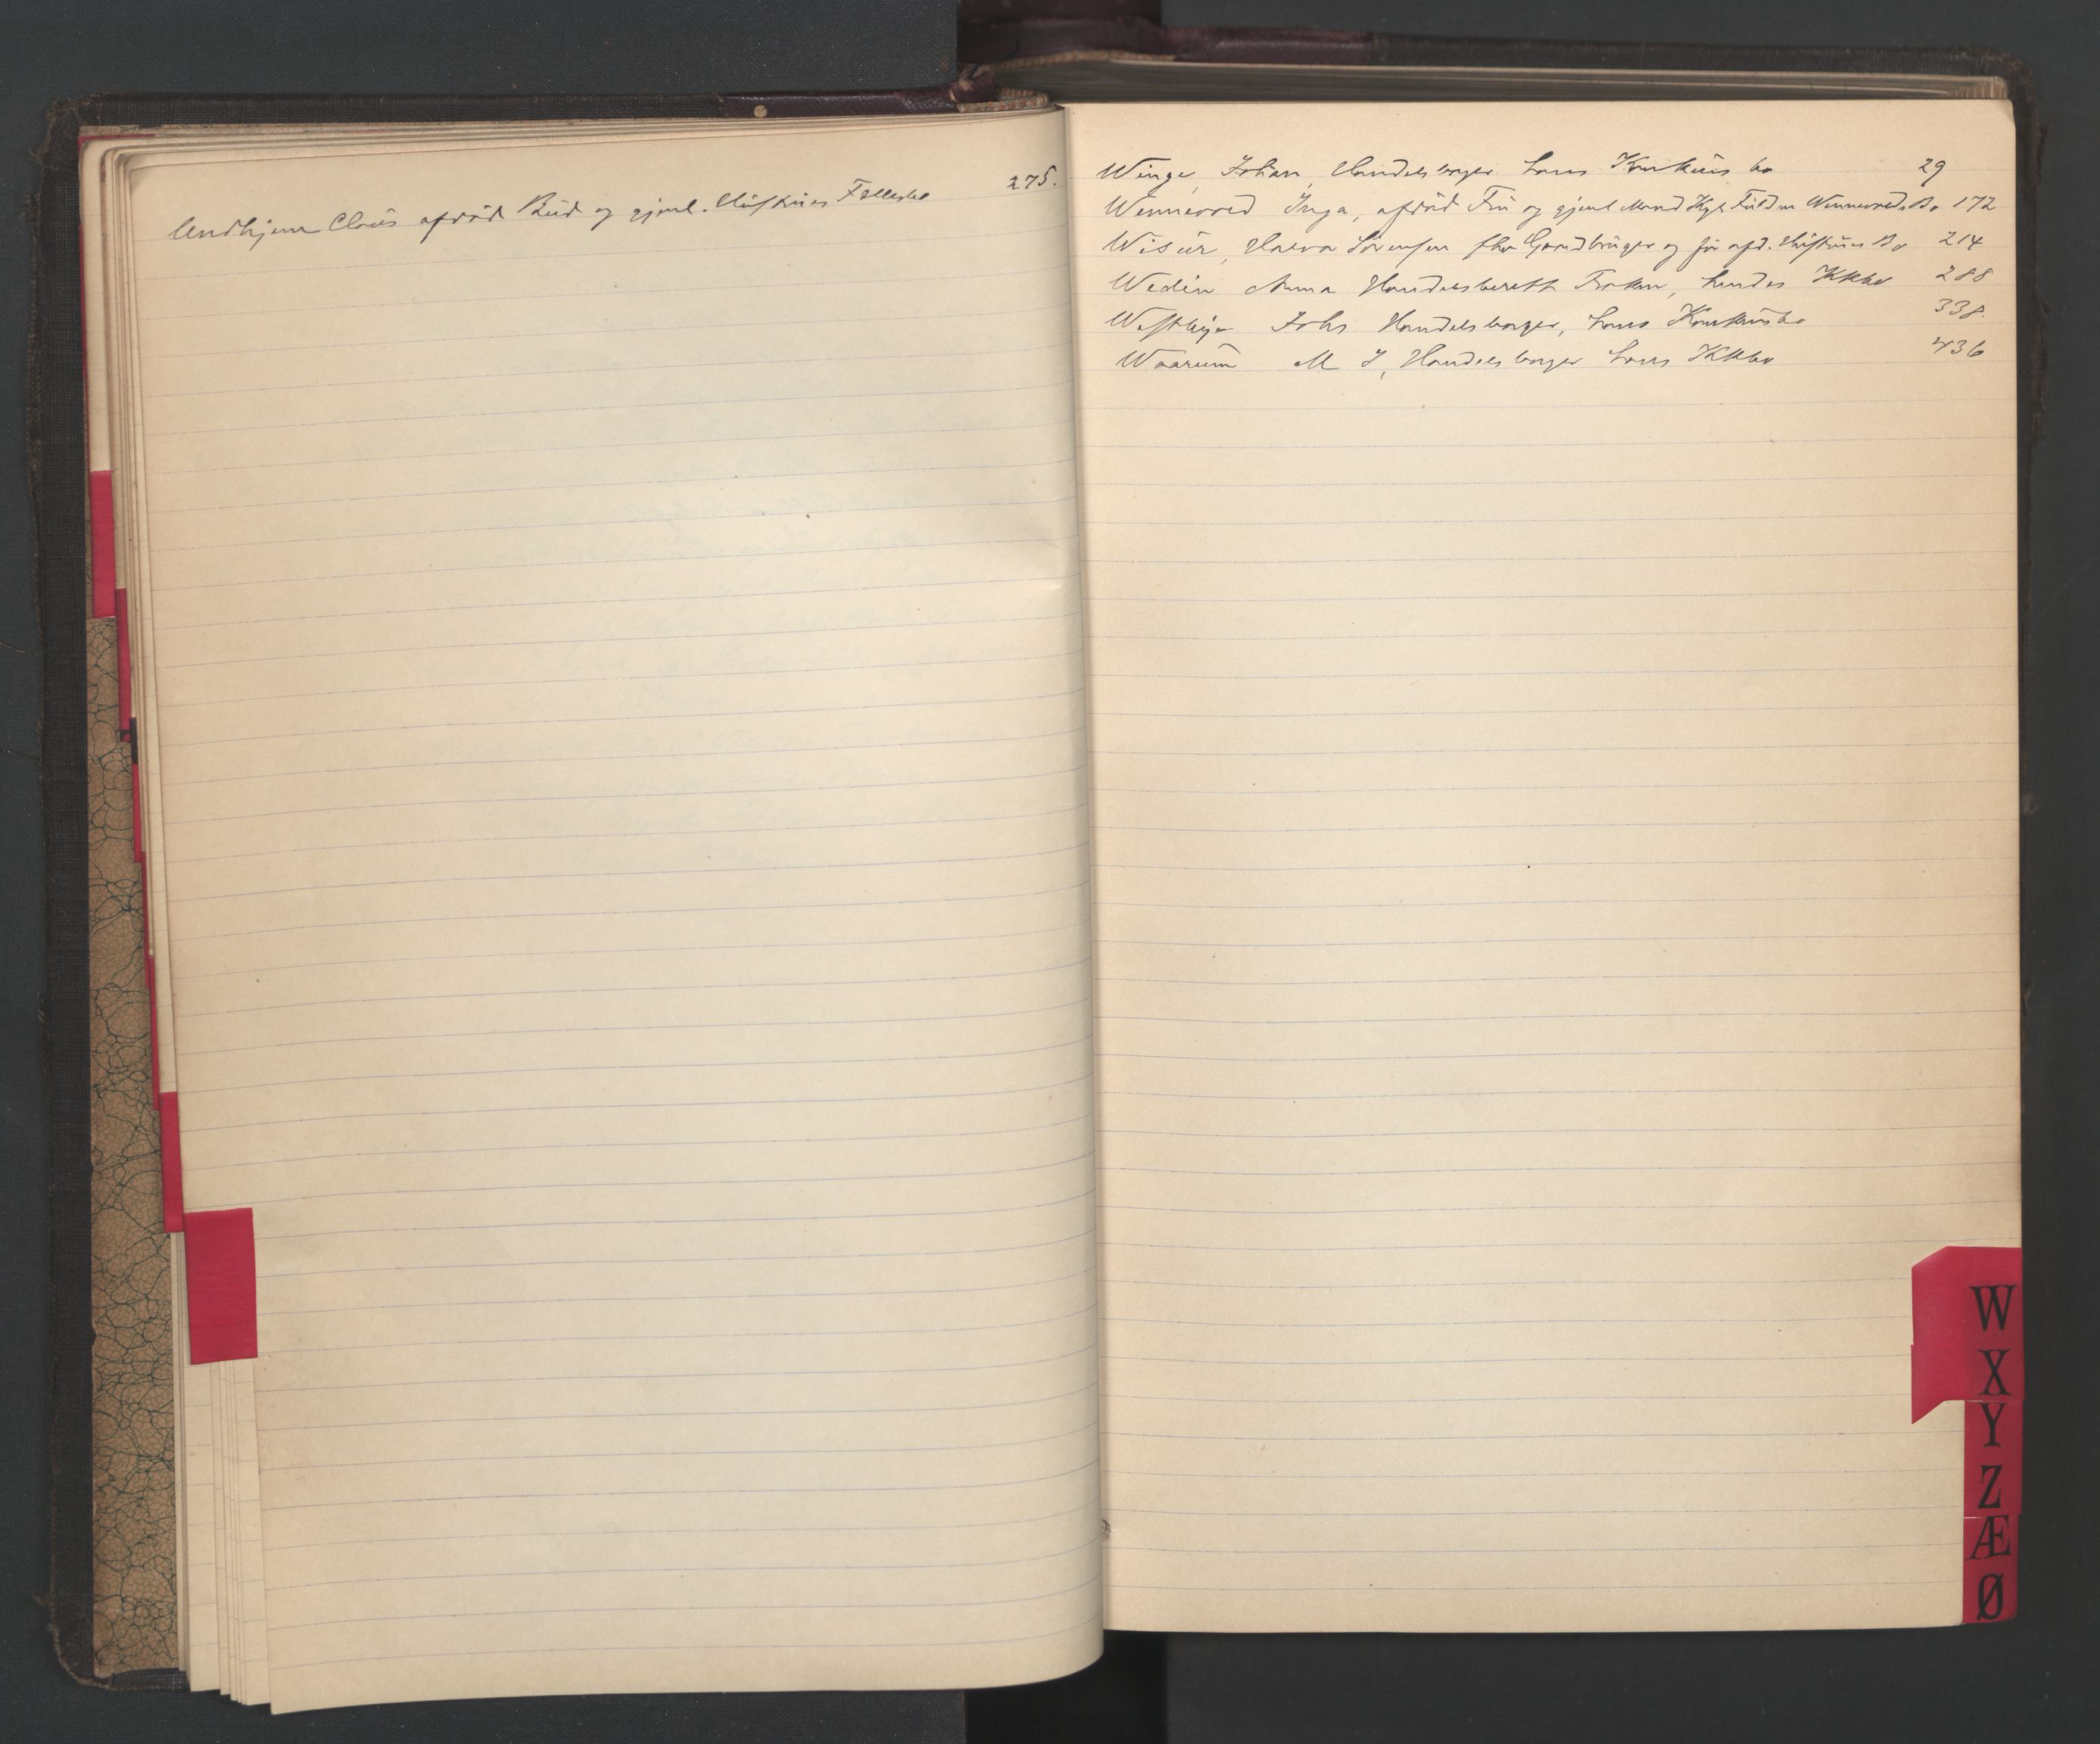 Undhjem Claus afdöd Bud og gjenl. Husfrues Fællesbo 275.
Winge, Johan, Handelsborger hans Konkurs bo 29
Wennevold Inga, afdöd Fru og gjenl Mand Kgl Fuldm Wennevolds Bo 172
Wisur, Halvor Sörensen fhv Gaardbruger og før afd. Husfrues Bo 214
Wedin Anna Handelsberett Frøken, hendes KKbo 288
Westbye Johs Handelsborger, hans Konkursbo 338.
Waarum M J, Handelsborger hans KKbo 436
W
X
Y
Z
Æ
Ø